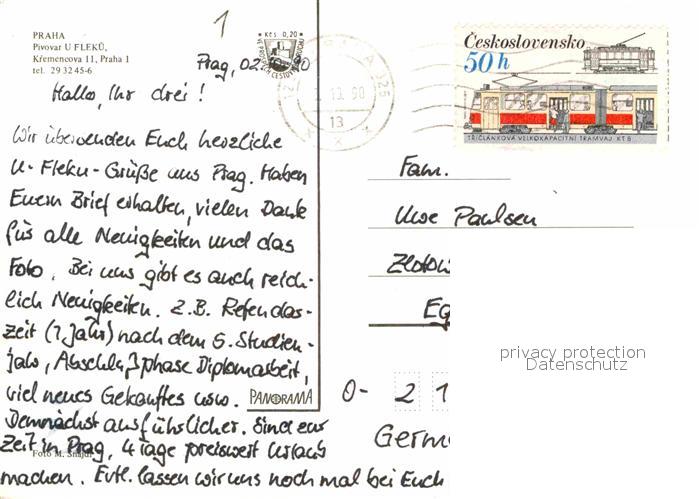 1
PRAHA
Pivovar U FLEKŮ,
Křemencova 11, Praha 1
tel. 29 32 45-6
Kčs 0,20
Prag, 02.10.90
Hallo, Ihr drei !
Wir übersenden Euch herzliche
U-Fleku-Grüße aus Prag. Haben
Euern Brief erhalten, vielen Dank
für alle Neuigkeiten und das
Foto. Bei uns gibt es auch reich-
lich Neuigkeiten. Z.B. Referendar-
zeit (1 Jahr) nach dem 5. Studien-
jahr, Abschlußphase Diplomarbeit,
viel neues Gekauftes usw.
Demnächst ausführlicher. Sind zur
Zeit in Prag, 4 Tage preiswert Urlaub
machen. Evtl. lassen wir uns noch mal bei Euch
PANORAMA
Foto M. Šnajdr
Československo
50 h
TŘÍČLÁNKOVÁ VELKOKAPACITNÍ TRAMVAJ KT 8
13
Fam.
Uwe Paulsen
Eg
O- 2 1
Germ
privacy protection
Datenschutz